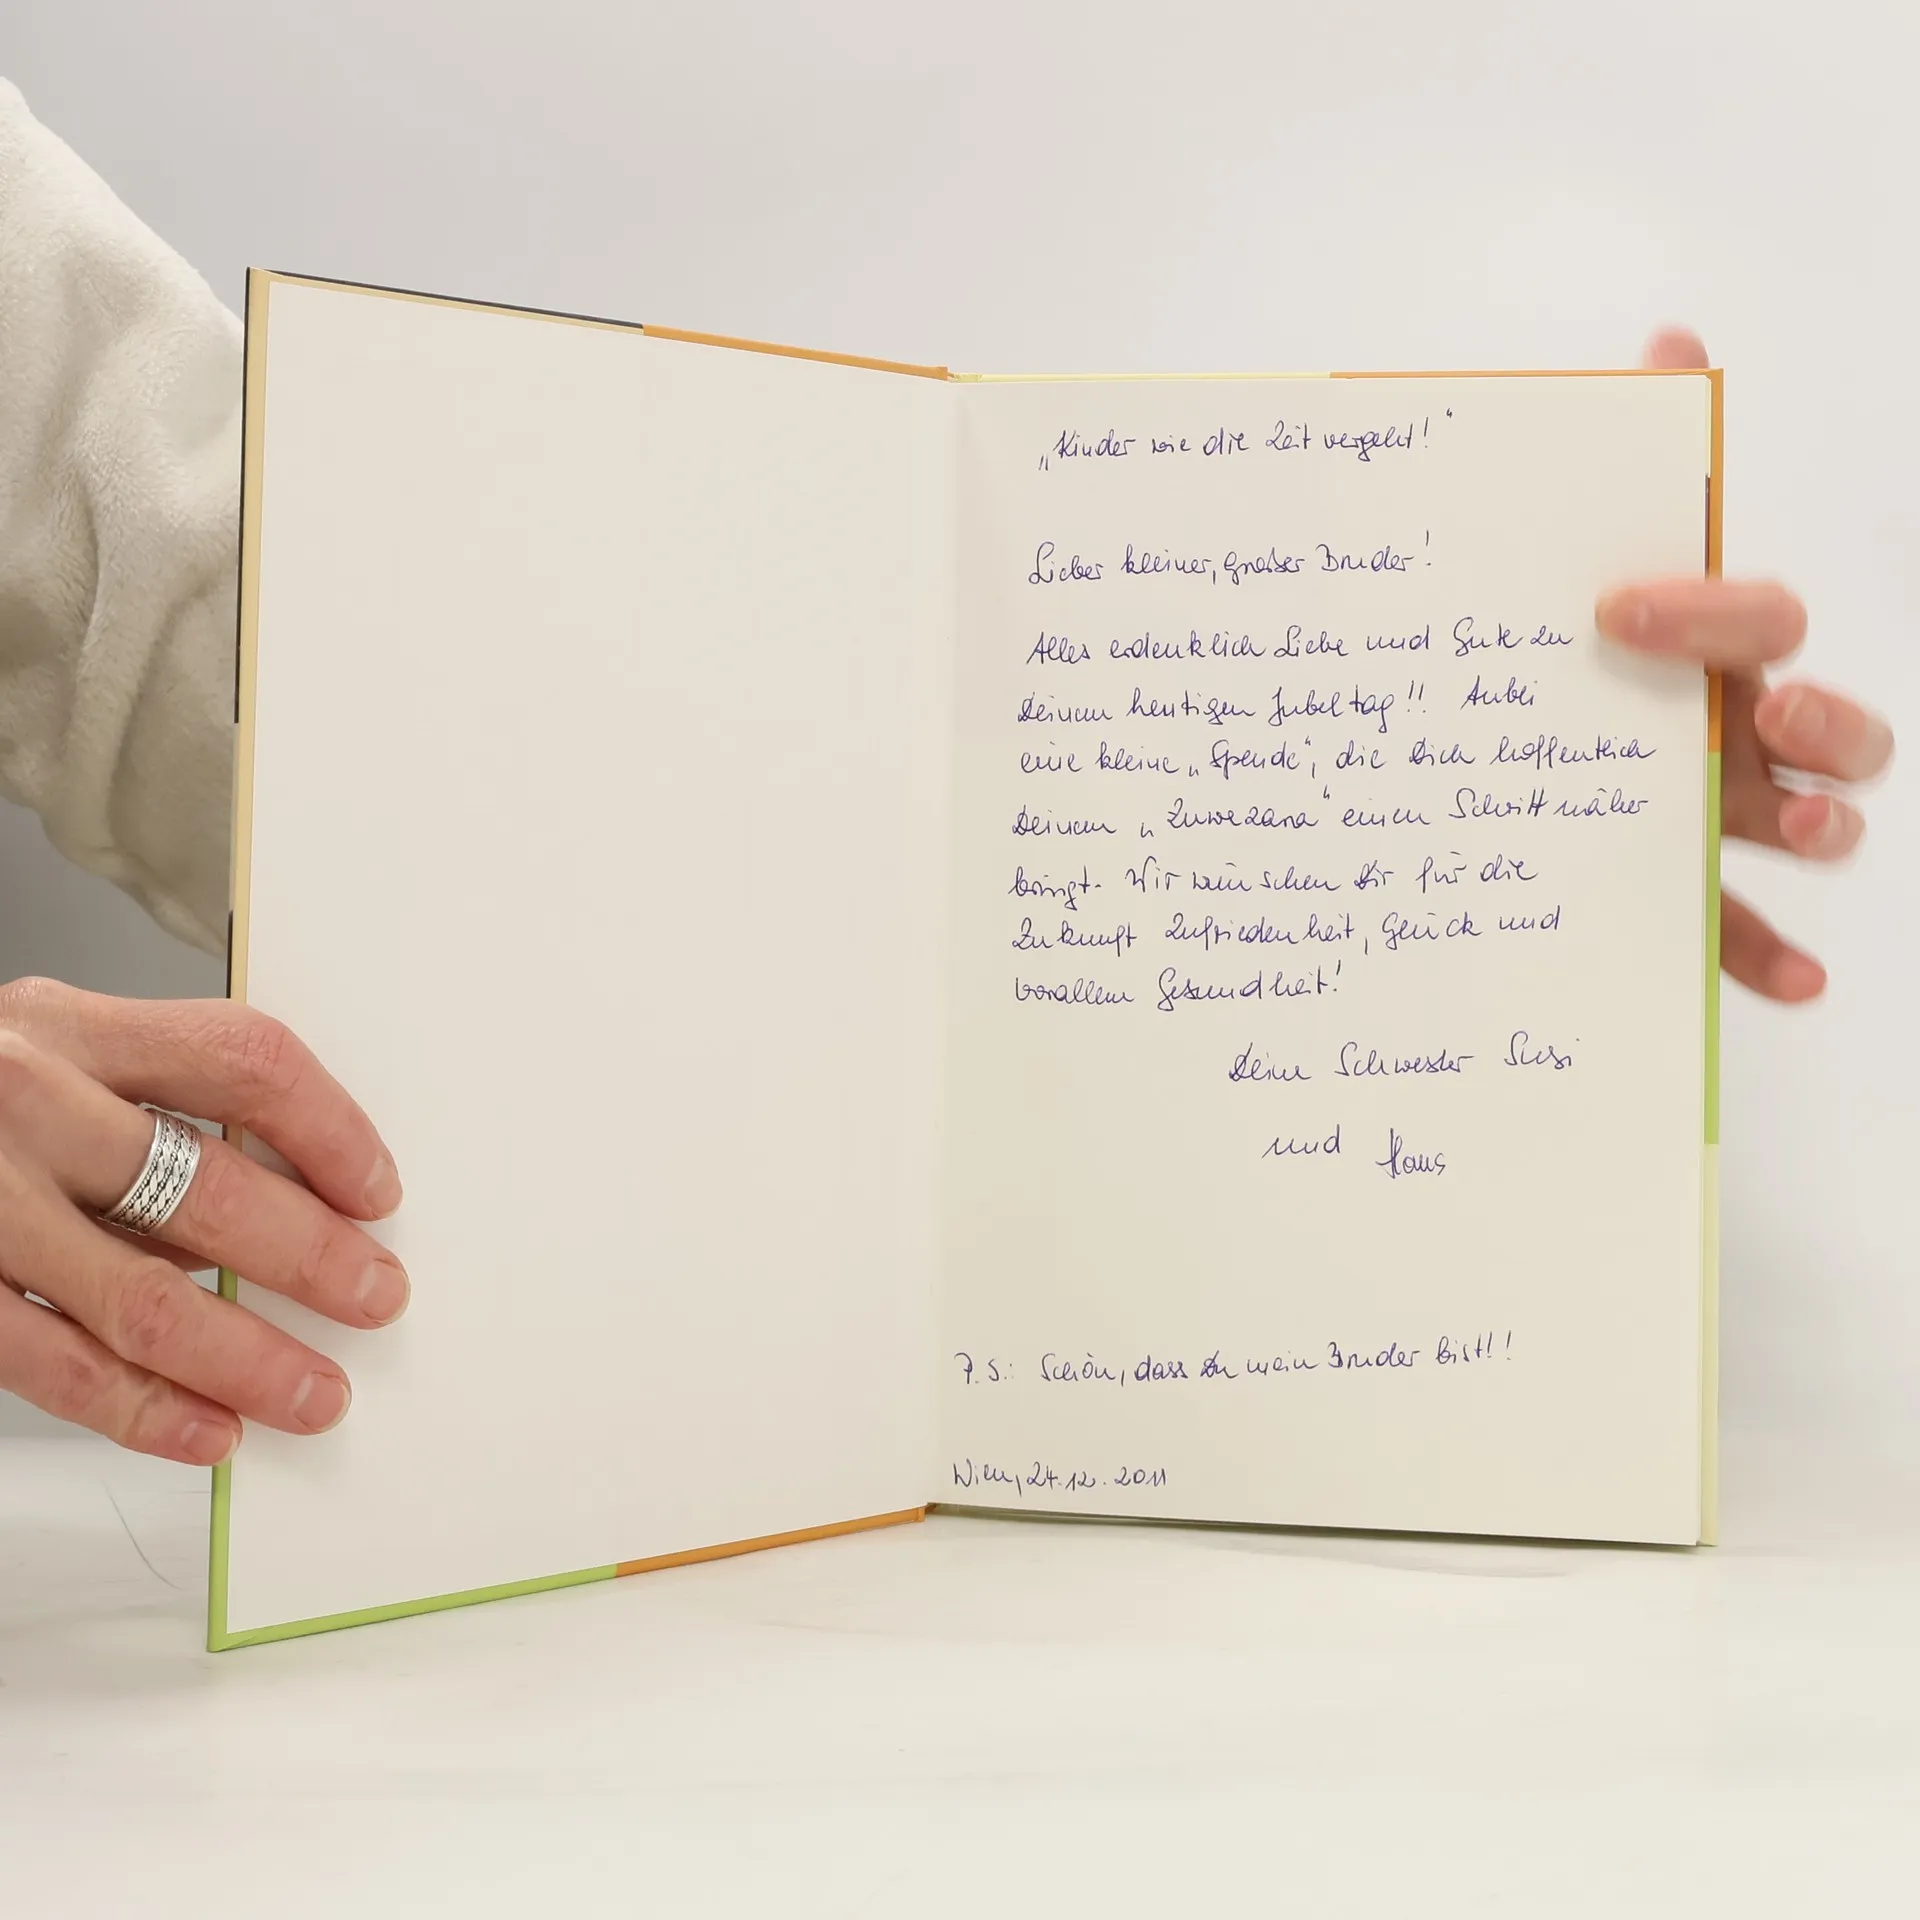 „Kinder wie die Zeit vergeht!“
Lieber kleiner, großer Bruder!
Alles erdenklich Liebe und Gute zu
Deinem heutigen Jubeltag!! Anbei
eine kleine „Spende“, die Dich hoffentlich
Deinem „ “ einen Schritt näher
bringt. Wir wünschen Dir für die
Zukunft Zufriedenheit, Glück und
vorallem Gesundheit!
Deine Schwester Susi
und Hans
P.S.: Schön, dass Du mein Bruder bist!!
Wien, 24.12.2011